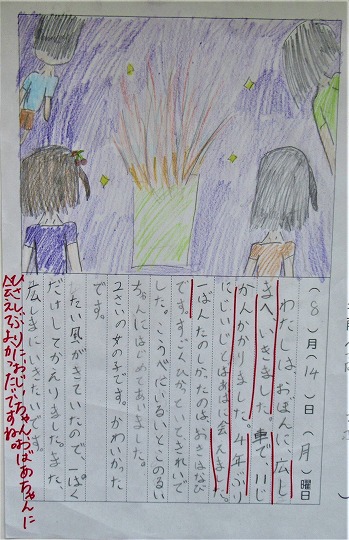 (8)月(14)日(月)曜日
わたしは、おぼんに、広し
まへ、いきました。車で、11じ
かんかかりました。4年ぶり
にじいじとばあばに会えました。
一ばんたのしかったのは、おきはなび
です。すごくひかって、とてもきれいで
した。こうべにいるいとこのるい
ちゃんにはじめてあいました。
2さいの女の子です。かわいかった
です。
たい風がきていたので、一ぱく
だけしてかえりました。また、
広しまにいきたいです。
ひさしぶりにおじいちゃん、おばあちゃんに
会えてよかったですね。